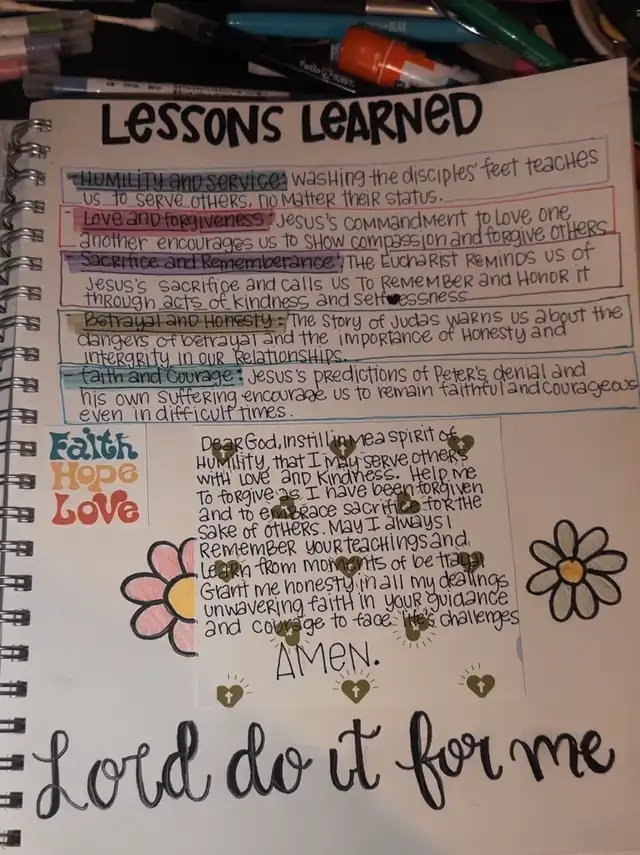 LESSONS LEARNED
-HUMILITY and SERVICE: WASHING THE disciples' FEET TEACHES
US TO SERVE OTHERS, NO MATTER THEIR STATUS.
-LOVE and forgiveness: JESUS'S COMMANDMENT TO LOVE ONE
another encourages us to show compassion and forgive others
-Sacrifice and Rememberance: THE EUCHARIST REMINDS US OF
JESUS'S SACRIFICE and calls us to REMEMBER and HONOR it
through acts of kindness and selflessness
-Betrayal and Honesty: THE STORY OF JUDAS WARNS US about THE
dangers of betrayal and the importance of Honesty and
intergrity in our Relationships.
-Faith and Courage: JESUS'S predictions of PETER'S denial and
his own suffering encourage us to remain faithful and courageous
even in difficult times.
Faith
Hope
Love
Dear God, instill in me a spirit of
HUMILITY, that I may serve others
with Love and Kindness. Help me
to forgive as I have been forgiven
and to embrace sacrifice for the
sake of others. May I always
Remember your teachings and
Learn from moments of betrayal
Grant me honesty in all my dealings
unwavering faith in your guidance
and courage to face life's challenges
AMEN.
Lord do it for me